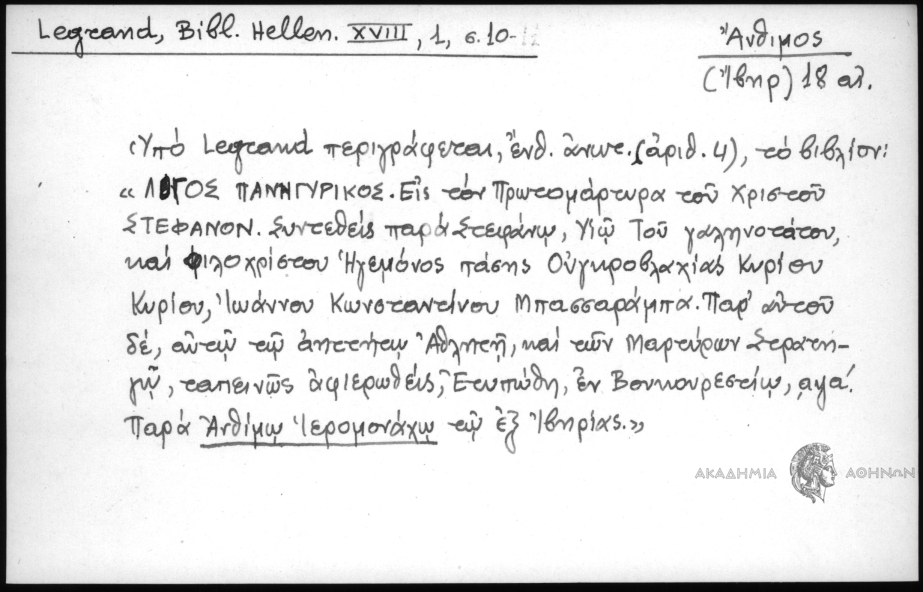 Legrand, Bibl. Hellen. XVIII, 1, σ. 10-12
Ἄνθιμος
(Ἴβηρ) 18 αἰ.
Ὑπό Legrand περιγράφεται, ἔνθ. ἀνωτ. (ἀριθ. 4), τό βιβλίον:
« ΛΟΓΟΣ ΠΑΝΗΓΥΡΙΚΟΣ. Εἰς τόν Πρωτομάρτυρα τοῦ Χριστοῦ
ΣΤΕΦΑΝΟΝ. Συντεθείς παρά Στεφάνῳ, Υἱῷ Τοῦ γαληνοτάτου,
καί Φιλοχρίστου Ἡγεμόνος πάσης Οὐγκροβλαχίας Κυρίου
Κυρίου, Ἰωάννου Κωνσταντίνου Μπασσαράμπα. Παρ' αὐτοῦ
δέ, αὐτῷ τῷ ἀηττήτῳ Ἀθλητῇ, καί τῶν Μαρτύρων Στρατη-
γῷ, ταπεινῶς ἀφιερωθείς, Ἐτυπώθη, ἐν Βουκουρεστίῳ, ͵αψα΄.
Παρά Ἀνθίμῳ Ἱερομονάχῳ τῷ ἐξ Ἰβηρίας.»
ΑΚΑΔΗΜΙΑ ΑΘΗΝΩΝ